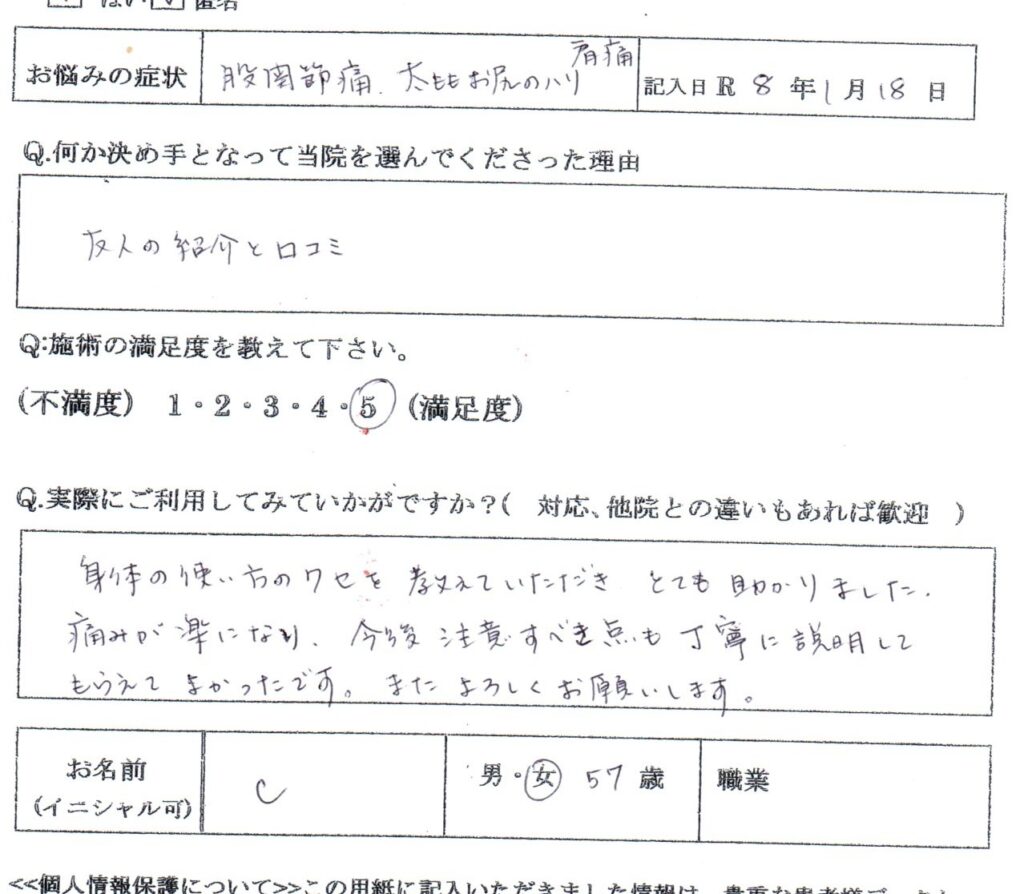 はい 匿名
肩痛
お悩みの症状 股関節痛、太もも お尻のハリ 記入日 R 8 年 1 月 18 日
Q.何か決め手となって当院を選んでくださった理由
友人の紹介と口コミ
Q:施術の満足度を教えて下さい。
(不満度) 1・2・3・4・5 (満足度)
Q.実際にご利用してみていかがですか？( 対応、他院との違いもあれば歓迎 )
身体の使い方のクセを 教えていただき とても 助かりました、
痛みが楽になり、今後 注意すべき点も丁寧に説明して
もらえて よかったです。また よろしく お願いします。
お名前 C 男・女 57 歳 職業
(イニシャル可)
<<個人情報保護について>>この用紙に記入いただきました情報は、貴重な患者様データ